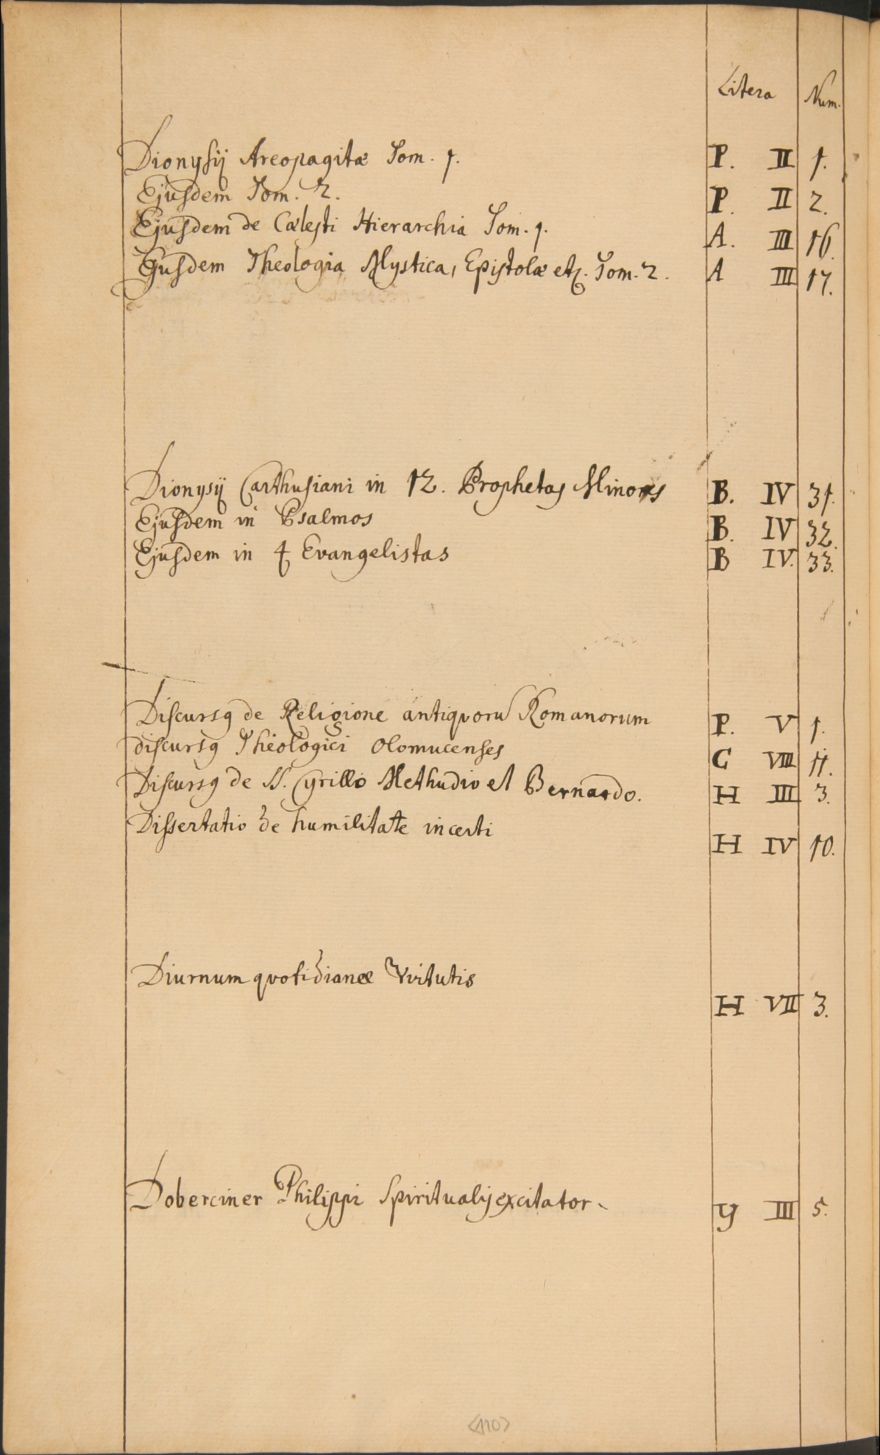 Litera Num.
Dionysij Areopagitæ Tom. 1. P. II 1.
Ejusdem Tom. 2. P. II 2.
Ejusdem de Cælesti Hierarchia Tom. 1. A. III 16.
Ejusdem Theologia Mystica, Epistolæ etc. Tom. 2. A III 17.
Dionysij Carthusiani in 12. Prophetas Minores B. IV 31.
Ejusdem in Psalmos B. IV 32.
Ejusdem in 4 Evangelistas B IV. 33.
Discursq de Religione antiquorū Romanorum P. V 1.
discursq Theologici Olomucenses C VIII 11.
Discursq de SS. Cyrillo Methudio et Bernardo. H III 3.
Dissertatio de humilitate incerti H IV 10.
Diurnum quotidianæ Virtutis H VII 3.
Doberciner Philippi Spiritualis excitator. Y III 5.
<110>